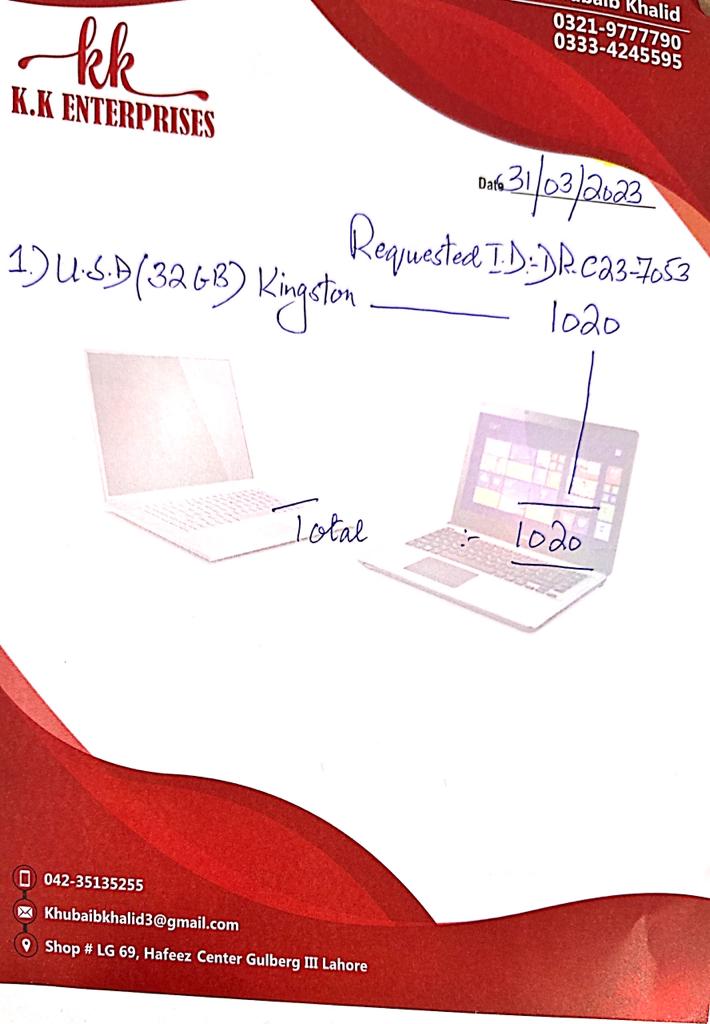 Khalid
0321-9777790
0333-4245595
kk
K.K ENTERPRISES
Date 31/03/2023
Requested I.D:-DR-C23-7053
1.) U.S.B (32GB) Kingston — 1020
Total :- 1020
042-35135255
Khubaibkhalid3@gmail.com
Shop # LG 69, Hafeez Center Gulberg III Lahore